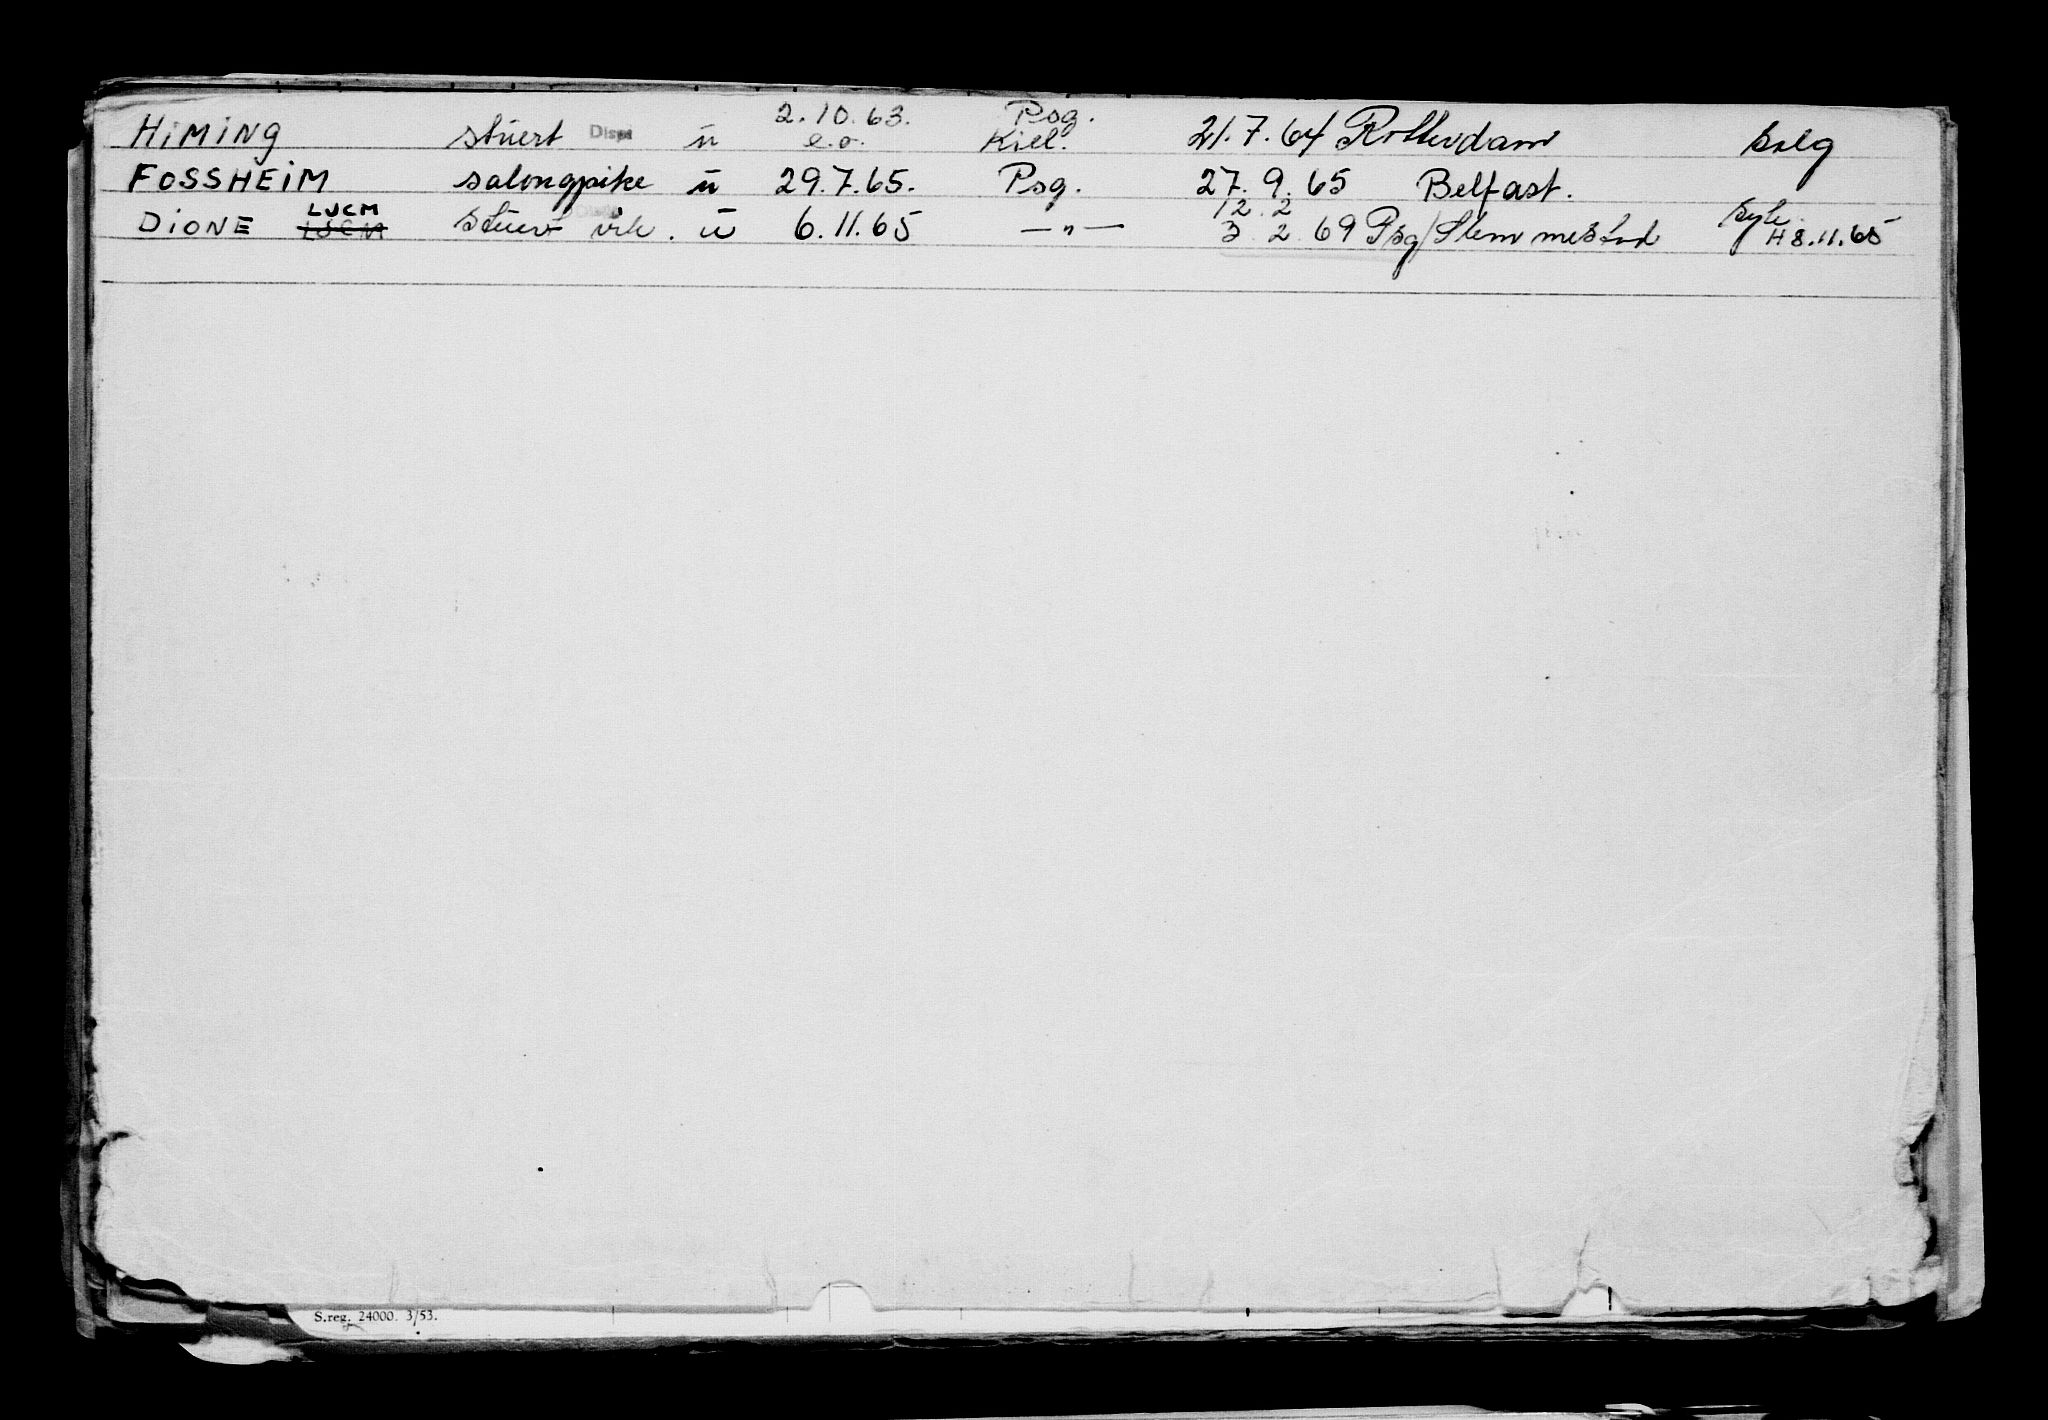 HiMiNG stuert Disp u 2.10.63. e.o. Psg. Kiel. 21.7.64 Rotterdam salg
FOSSHEiM salongpike u 29.7.65. Psg. 27.9.65 Belfast.
DiONE LJCM stuert vik. u 6.11.65 —〃— 12.2 3.2.69 Psg/Slemmestad syk H 8.11.65
S.reg. 24000. 3/53.